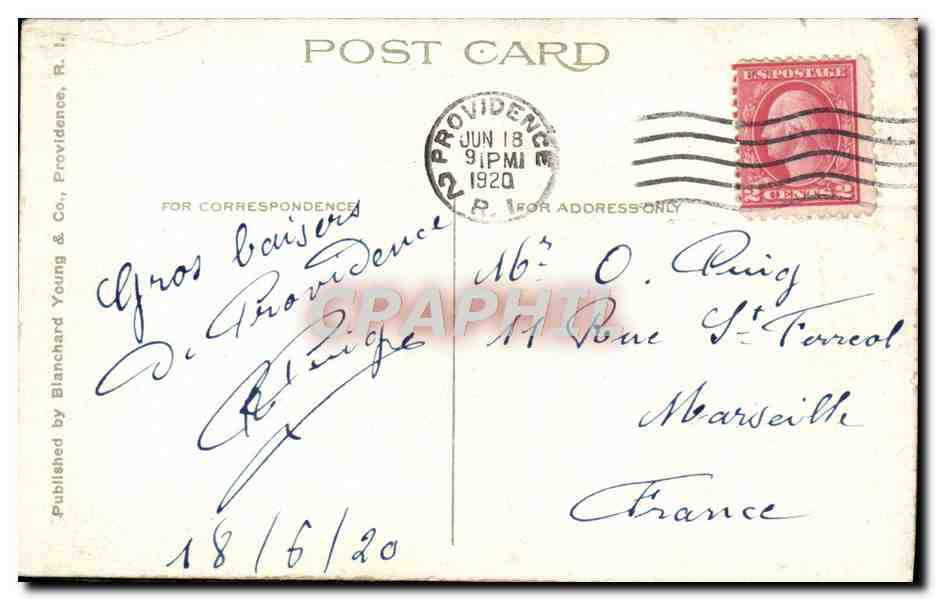 POST CARD
Published by Blanchard Young & Co., Providence, R. I.
U.S. POSTAGE
2 CENTS 2
PROVIDENCE
JUN 18
9 PM
1920
2
R. I.
FOR CORRESPONDENCE
FOR ADDRESS ONLY
Gros baisers
De Providence
Puig
18/6/20
Mr. O. Puig
11 Rue St. Ferreol
Marseille
France
CPAPHIL